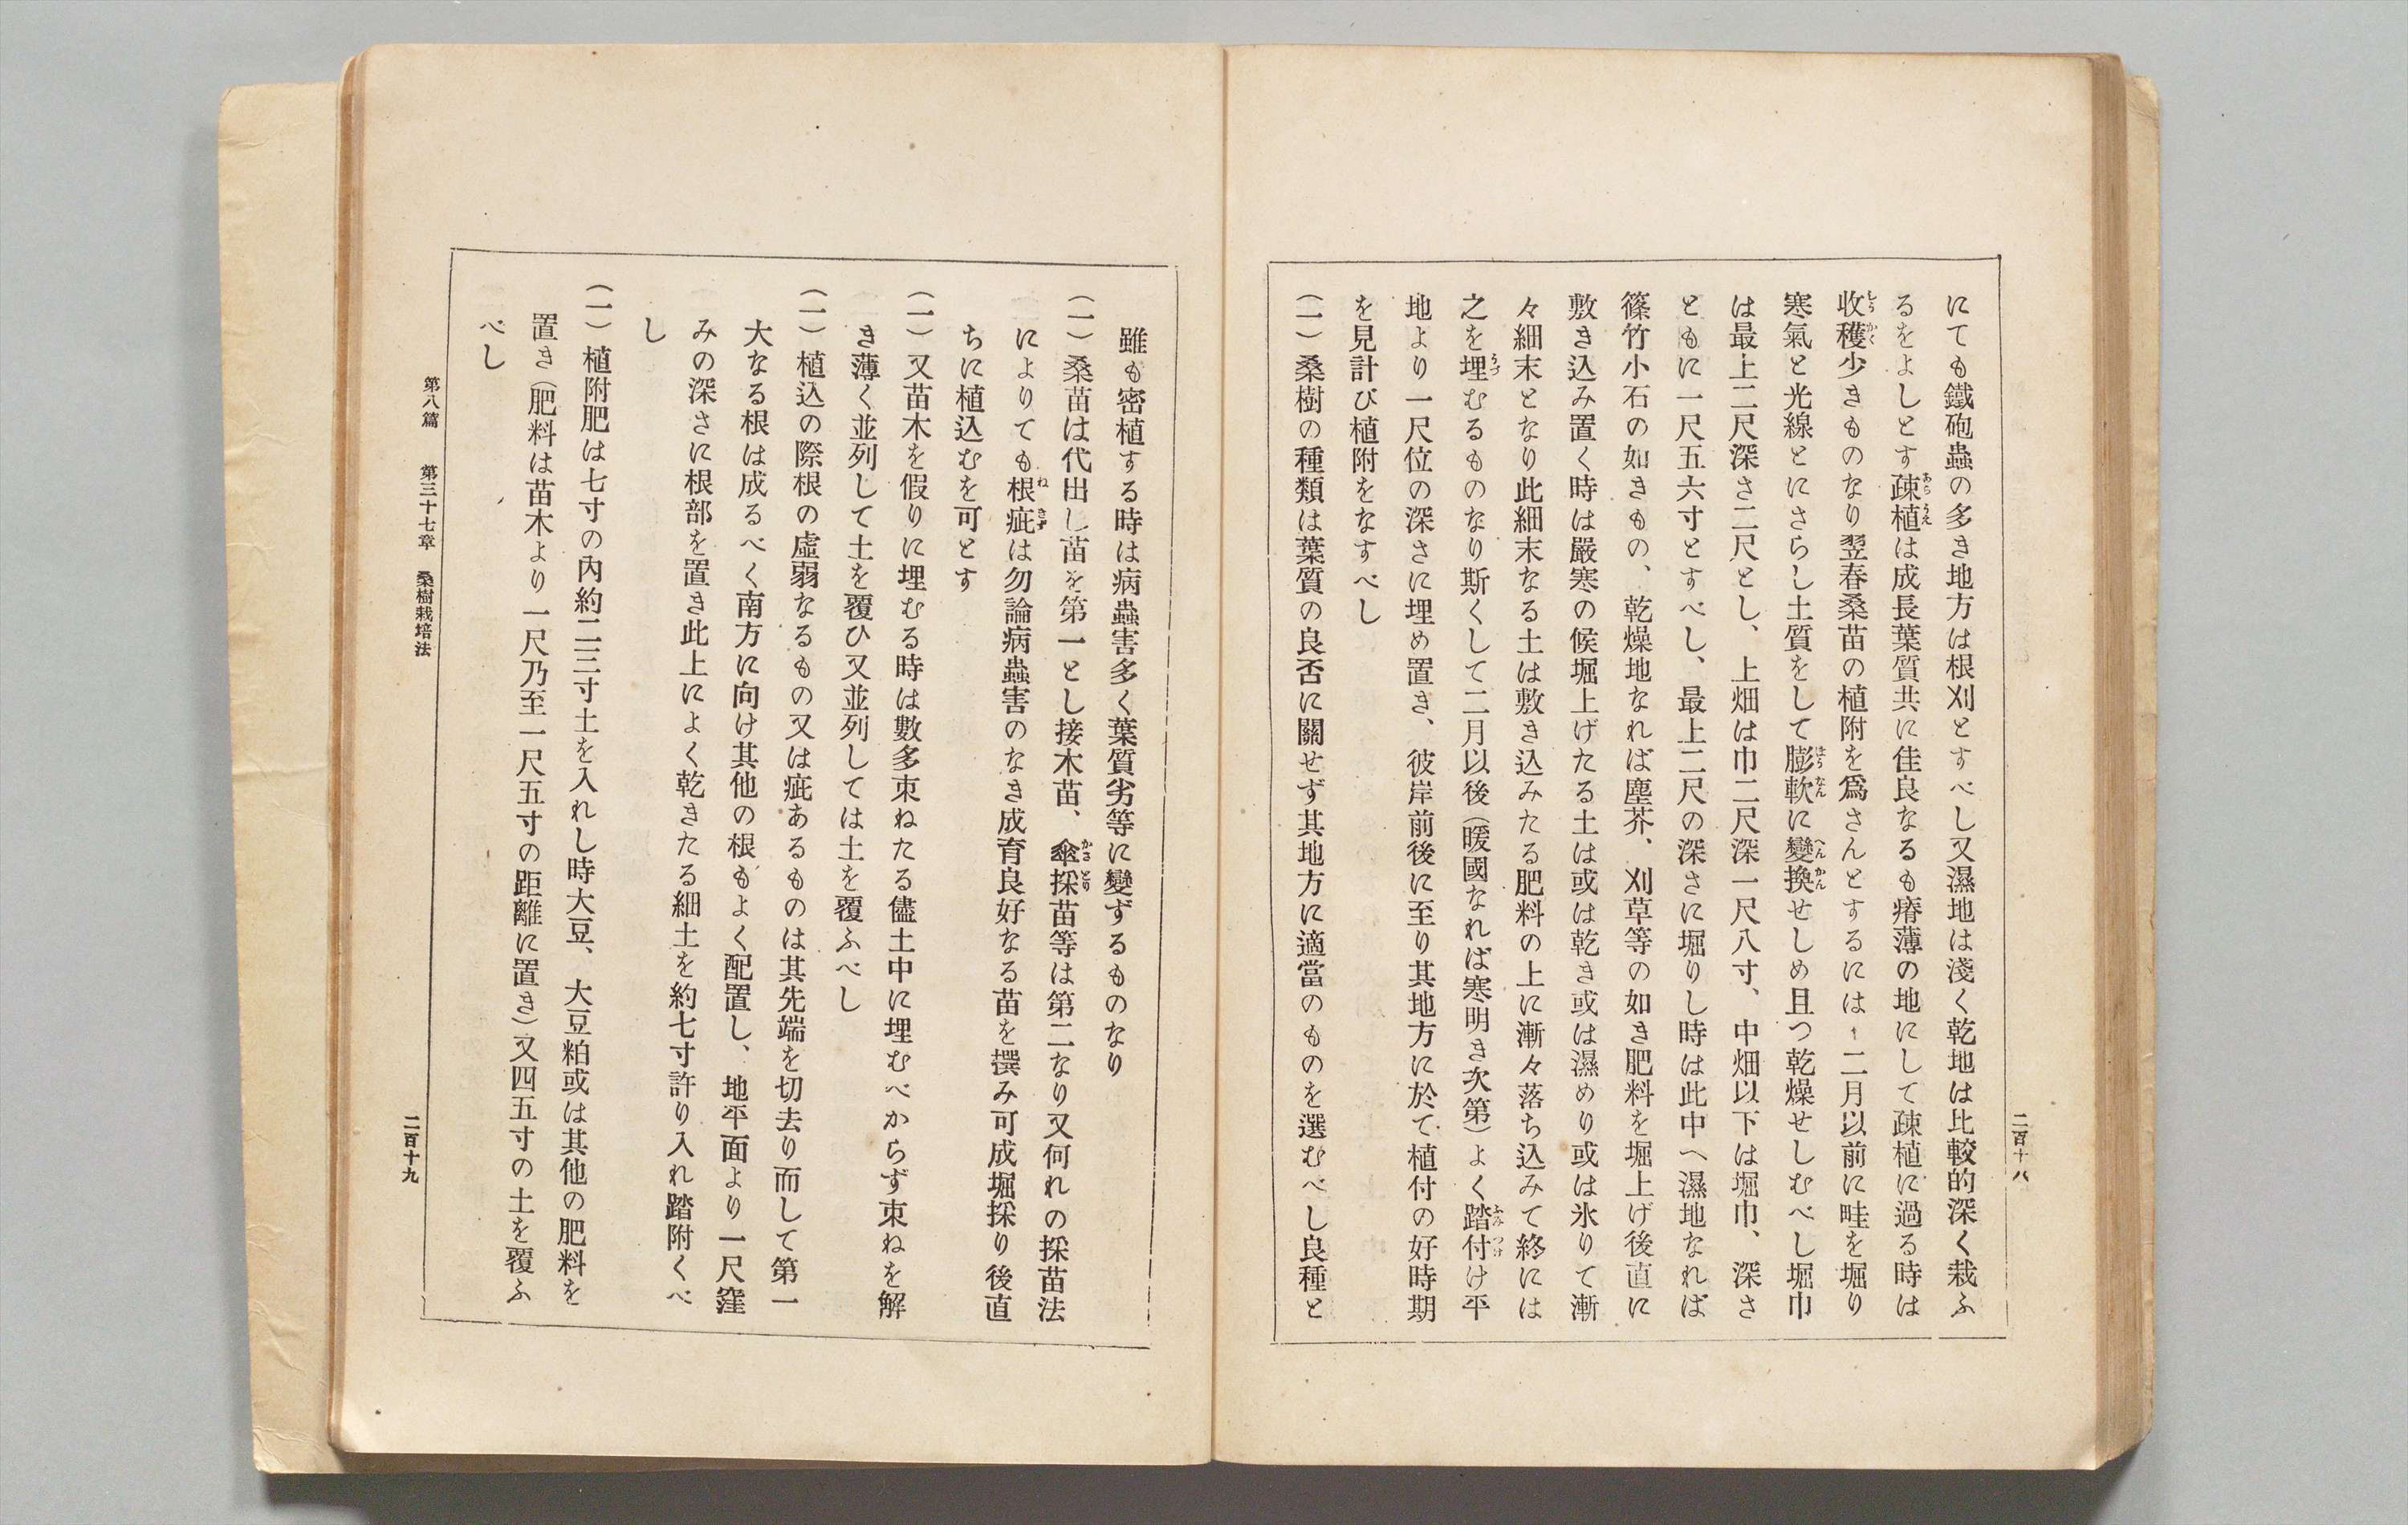 二百十八
にても鐵砲蟲の多き地方は根刈とすべし又濕地は淺く乾地は比較的深く栽ふ
るをよしとす疎植は成長葉質共に佳良なるも瘠薄の地にして疎植に過る時は
收穫少きものなり翌春桑苗の植附を爲さんとするには、二月以前に畦を堀り
寒氣と光線とにさらし土質をして膨軟に變換せしめ且つ乾燥せしむべし堀巾
は最上二尺深さ二尺とし、上畑は巾二尺深一尺八寸、中畑以下は堀巾、深さ
ともに一尺五六寸とすべし、最上二尺の深さに堀りし時は此中へ濕地なれば
篠竹小石の如きもの、乾燥地なれば塵芥、刈草等の如き肥料を堀上げ後直に
敷き込み置く時は嚴寒の候堀上げたる土は或は乾き或は濕めり或は氷りて漸
々細末となり此細末なる土は敷き込みたる肥料の上に漸々落ち込みて終には
之を埋むるものなり斯くして二月以後（暖國なれば寒明き次第）よく踏付け平
地より一尺位の深さに埋め置き、彼岸前後に至り其地方に於て植付の好時期
を見計び植附をなすべし
（一）桑樹の種類は葉質の良否に關せず其地方に適當のものを選むべし良種と
雖も密植する時は病蟲害多く葉質劣等に變ずるものなり
（一）桑苗は代出し苗を第一とし接木苗、傘採苗等は第二なり又何れの採苗法
によりても根疵は勿論病蟲害のなき成育良好なる苗を撰み可成堀採り後直
ちに植込むを可とす
（一）又苗木を假りに埋むる時は數多束ねたる儘土中に埋むべからず束ねを解
き薄く並列して土を覆ひ又並列しては土を覆ふべし
（一）植込の際根の虛弱なるもの又は疵あるものは其先端を切去り而して第一
大なる根は成るべく南方に向け其他の根もよく配置し、地平面より一尺窪
みの深さに根部を置き此上によく乾きたる細土を約七寸許り入れ踏附くべ
し
（一）植附肥は七寸の內約二三寸土を入れし時大豆、大豆粕或は其他の肥料を
置き（肥料は苗木より一尺乃至一尺五寸の距離に置き）又四五寸の土を覆ふ
べし
第八篇　第三十七章　桑樹栽培法
二百十九